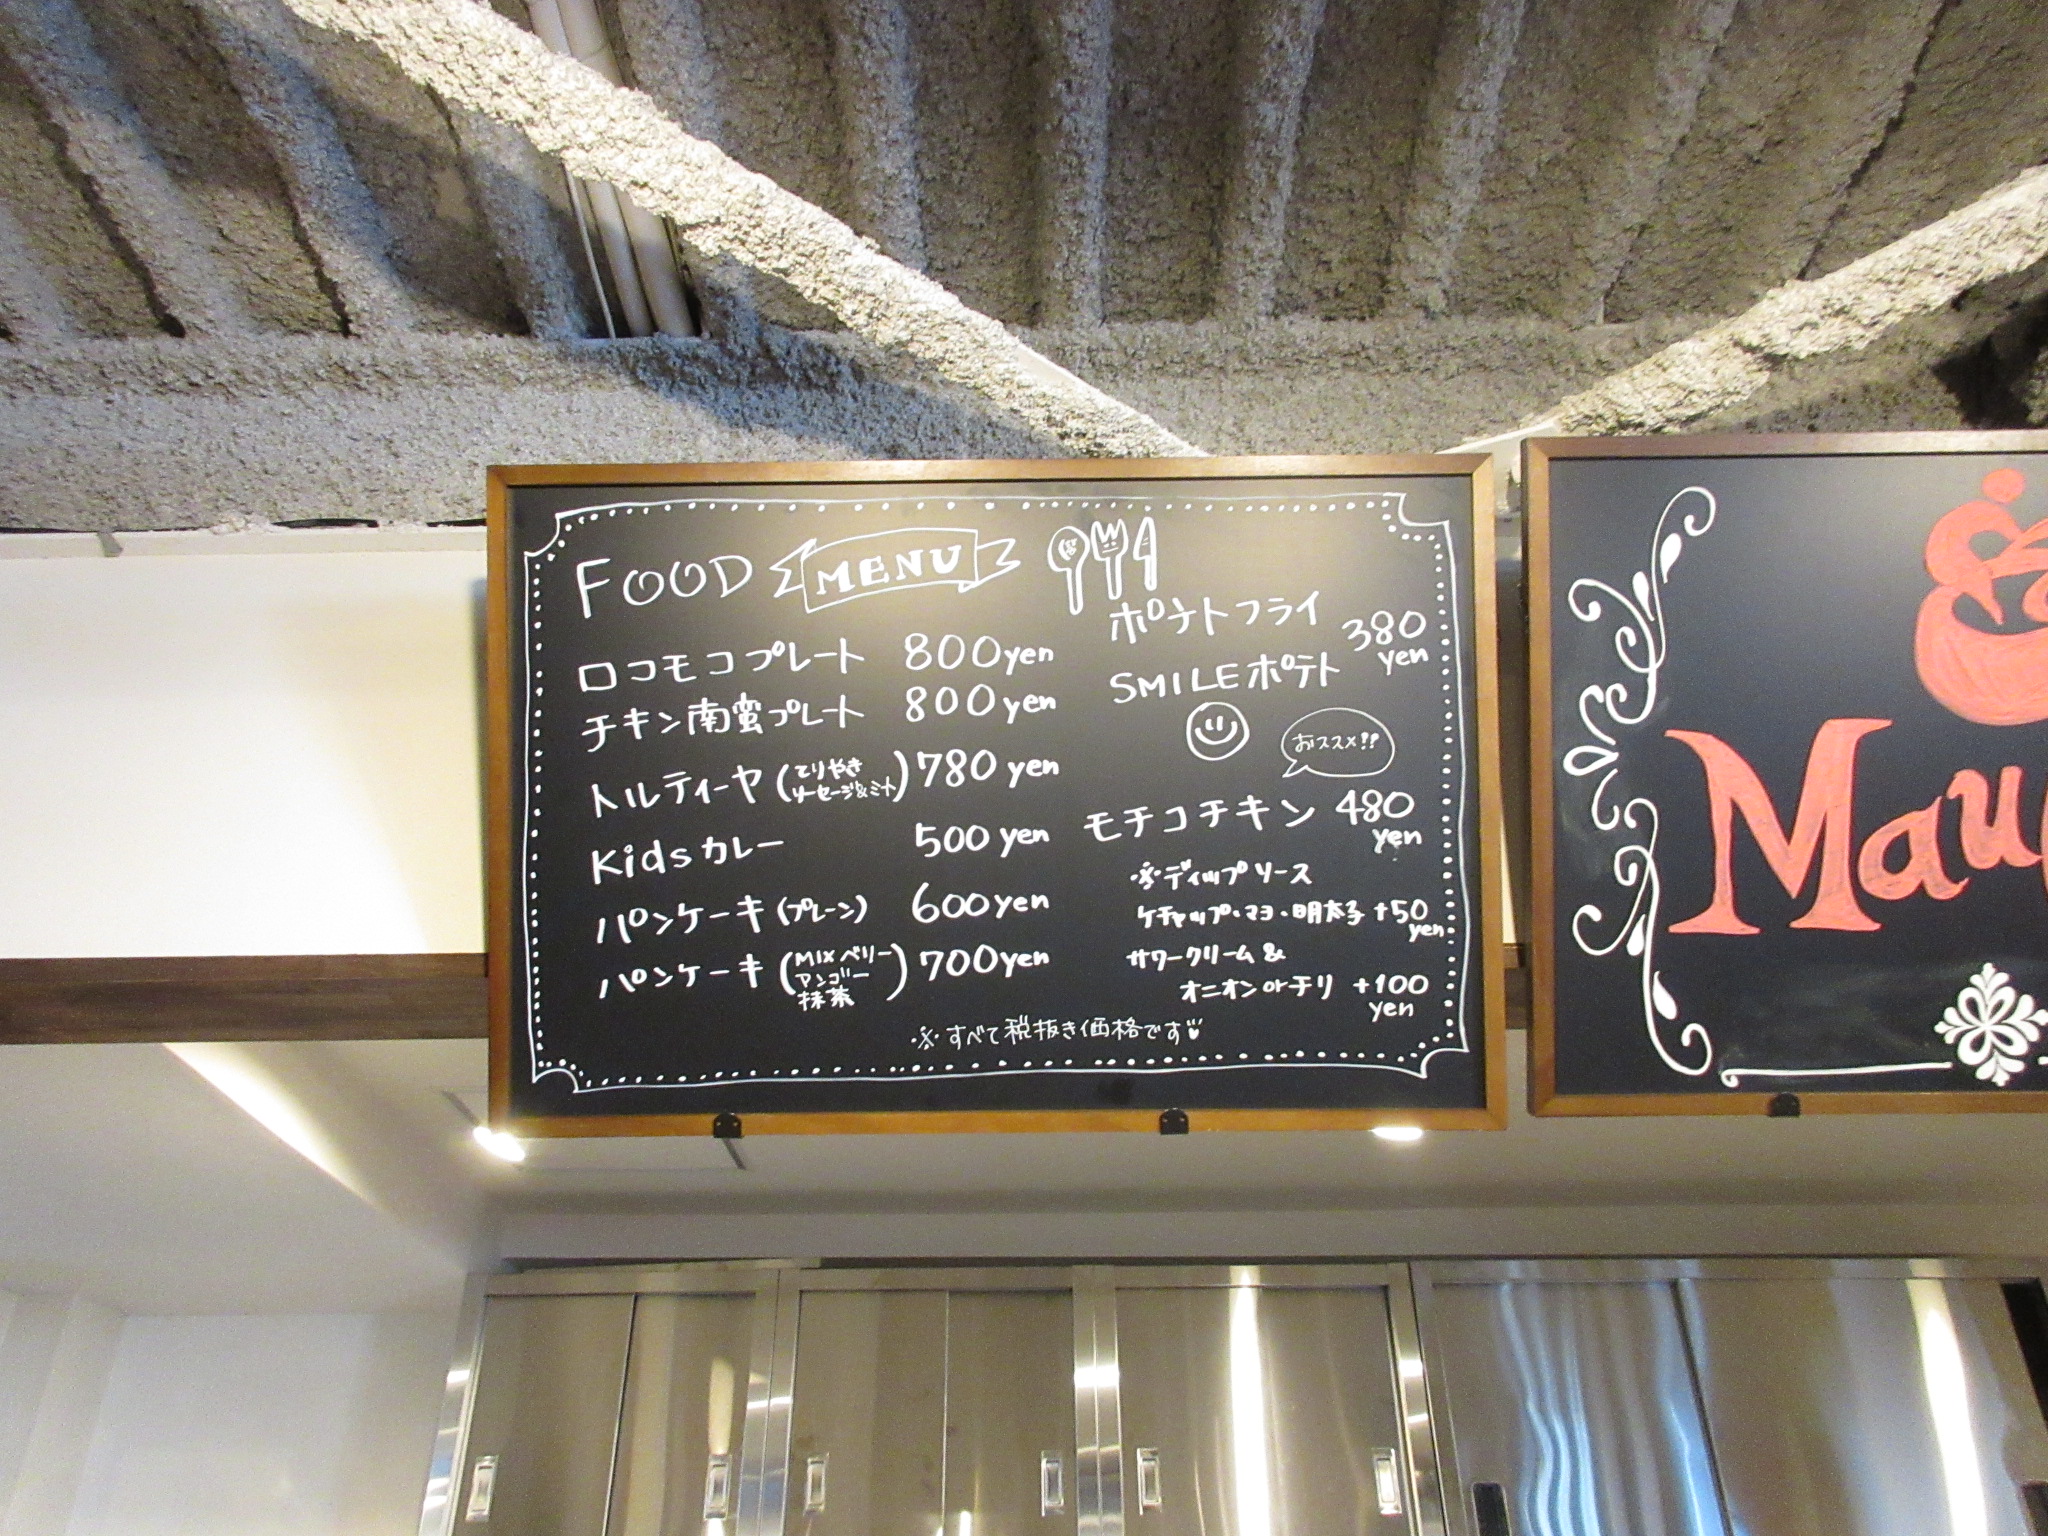 FOOD MENU
ロコモコプレート 800yen
チキン南蛮プレート 800yen
トルティーヤ (てりやき ソーセージ&ミート) 780 yen
Kidsカレー 500 yen
パンケーキ (プレーン) 600yen
パンケーキ (MIXベリー アンゴー 抹茶) 700yen
ポテトフライ
380 yen
SMILEポテト
おススメ!!
モチコチキン 480 yen
※ディップソース
ケチャップ・マヨ・明太子 +50 yen
サワークリーム &
オニオン or チリ +100 yen
※すべて税抜き価格です
Mau